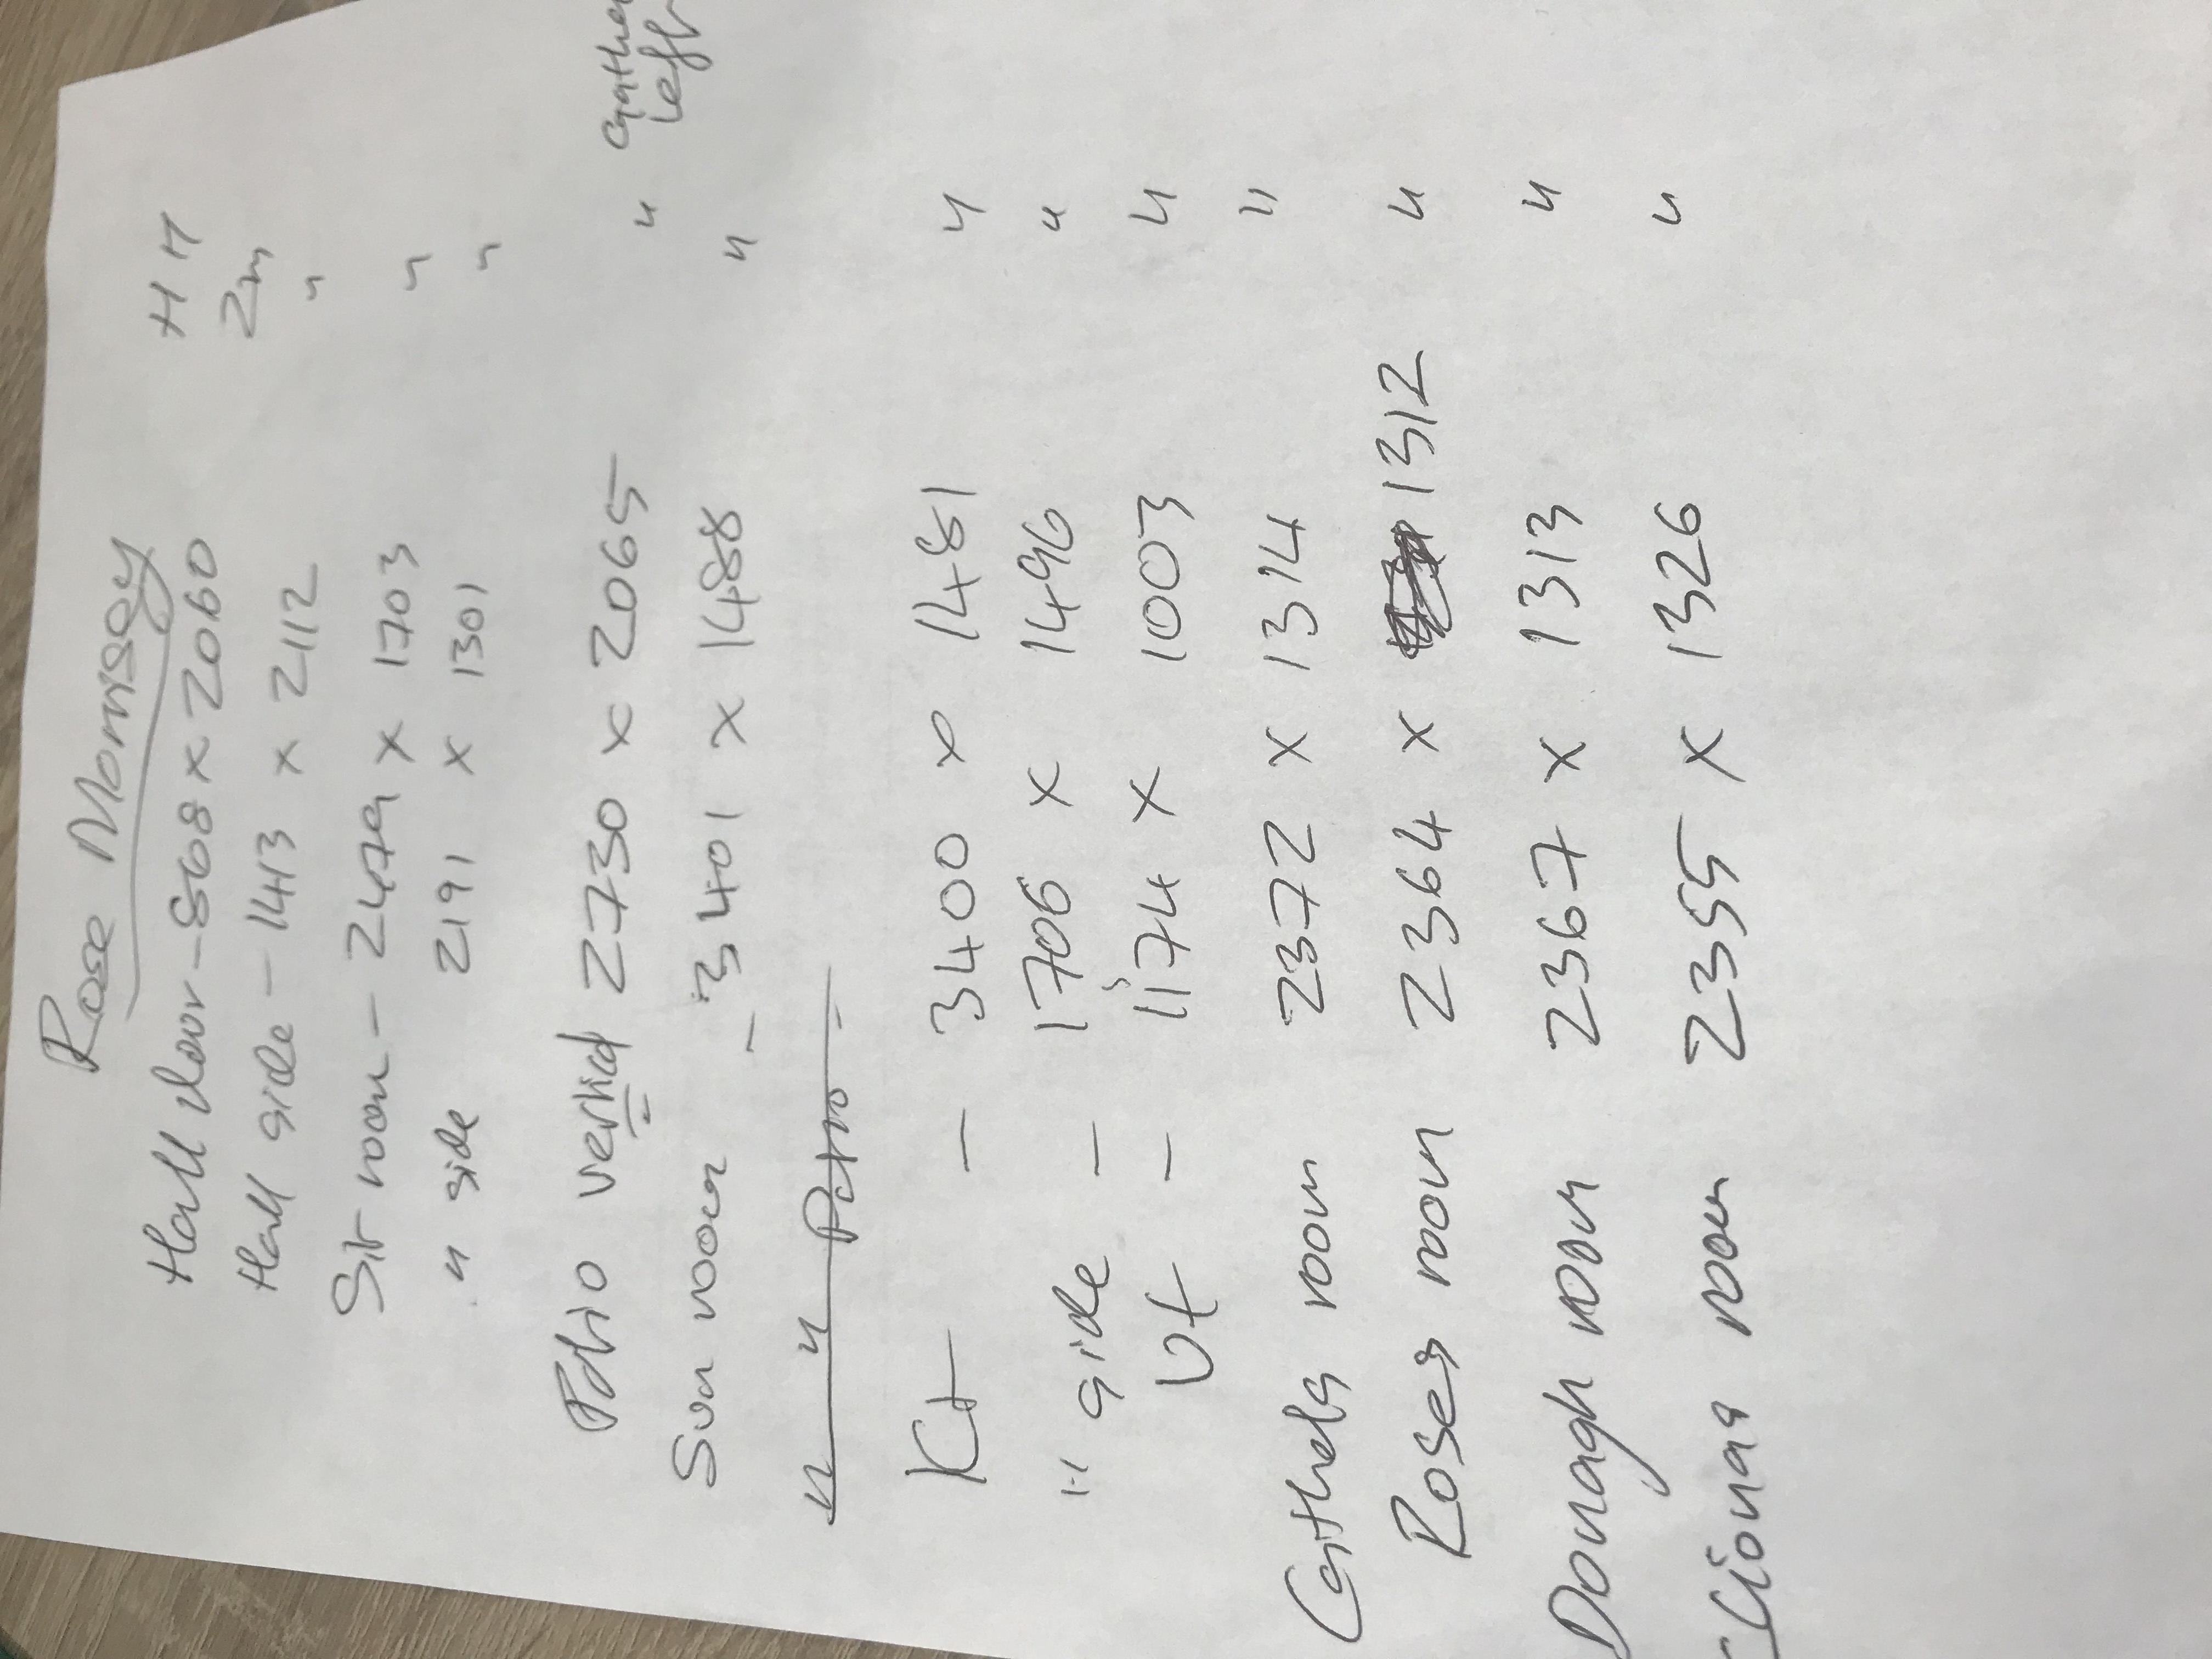 Rose Morrisey
HH
Hall door - 868 x 2060 2m
Hall side - 1413 x 2112 "
Sit room - 2479 x 1703 "
" side 2191 x 1301 "
Patio vertical 2730 x 2065 " gather left
Sun room - 3401 x 1488 "
" " Patio -
Kit - 3400 x 1481 "
" side - 1706 x 1496 "
Ut - 1174 x 1003 "
Caithels room 2372 x 1314 "
Roses room 2364 x 1312 "
Donagh room 2367 x 1313 "
Clionas room 2355 x 1326 "